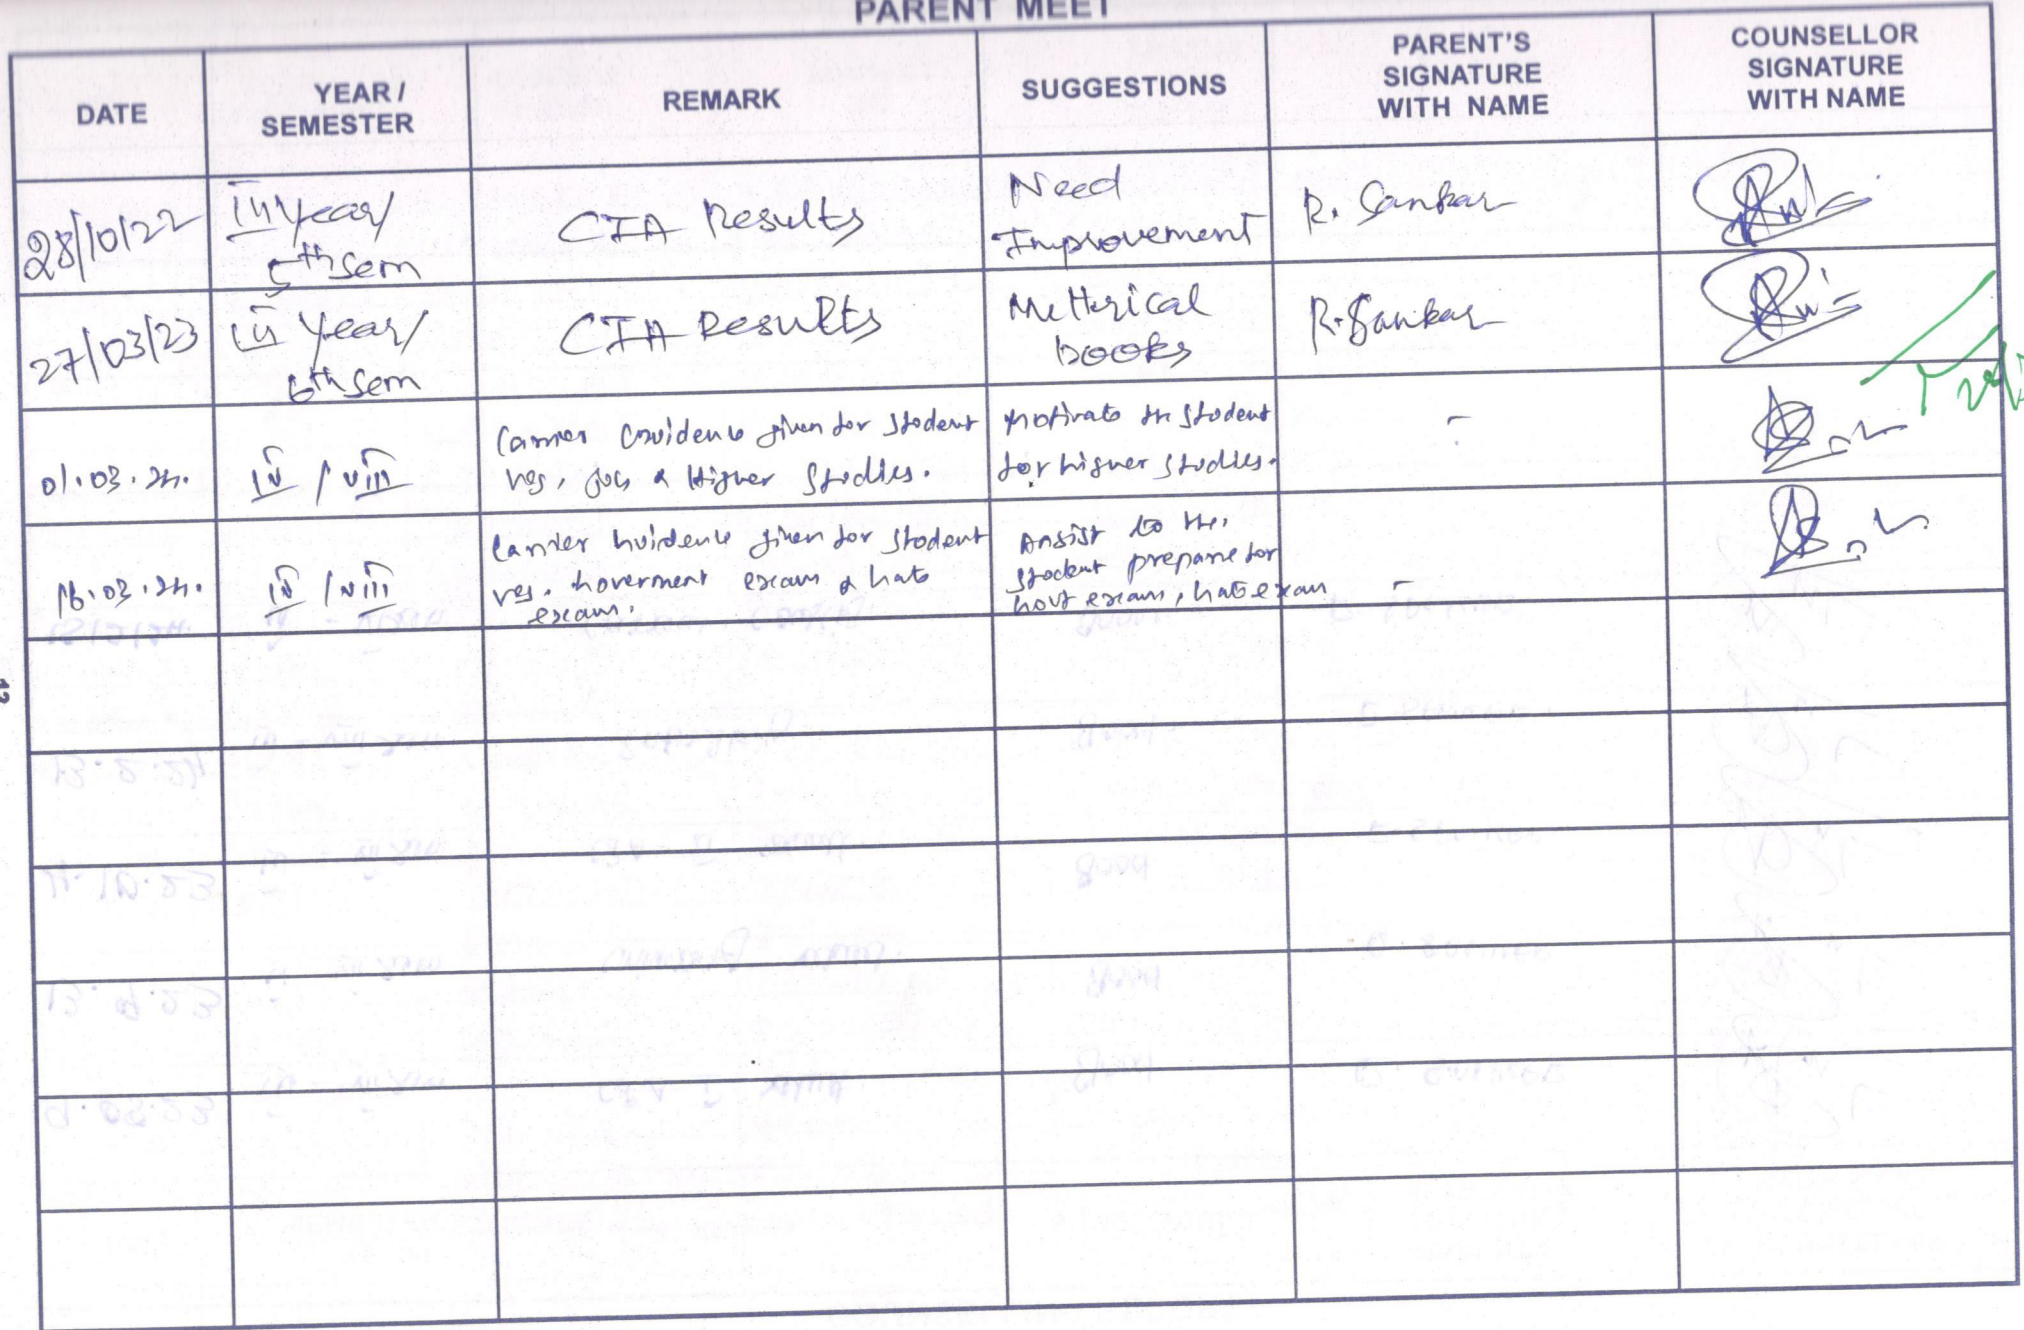 PARENT MEET
DATE
YEAR /
SEMESTER
REMARK
SUGGESTIONS
PARENT'S
SIGNATURE
WITH NAME
COUNSELLOR
SIGNATURE
WITH NAME
28/10/22
III Year/
5th Sem
CIA Results
Need
Improvement
R. Sankar
27/03/23
III Year/
6th Sem
CIA Results
books
R. Sankar
01.03.24.
IV / VIII
given for student
& Higher Studies.
Motivate the student
for higher studies.
-
16.03.24.
IV / VIII
given for student
exam & Gate
exam.
Assist to the
student prepare for
Govt exam, Gate exam
-
12